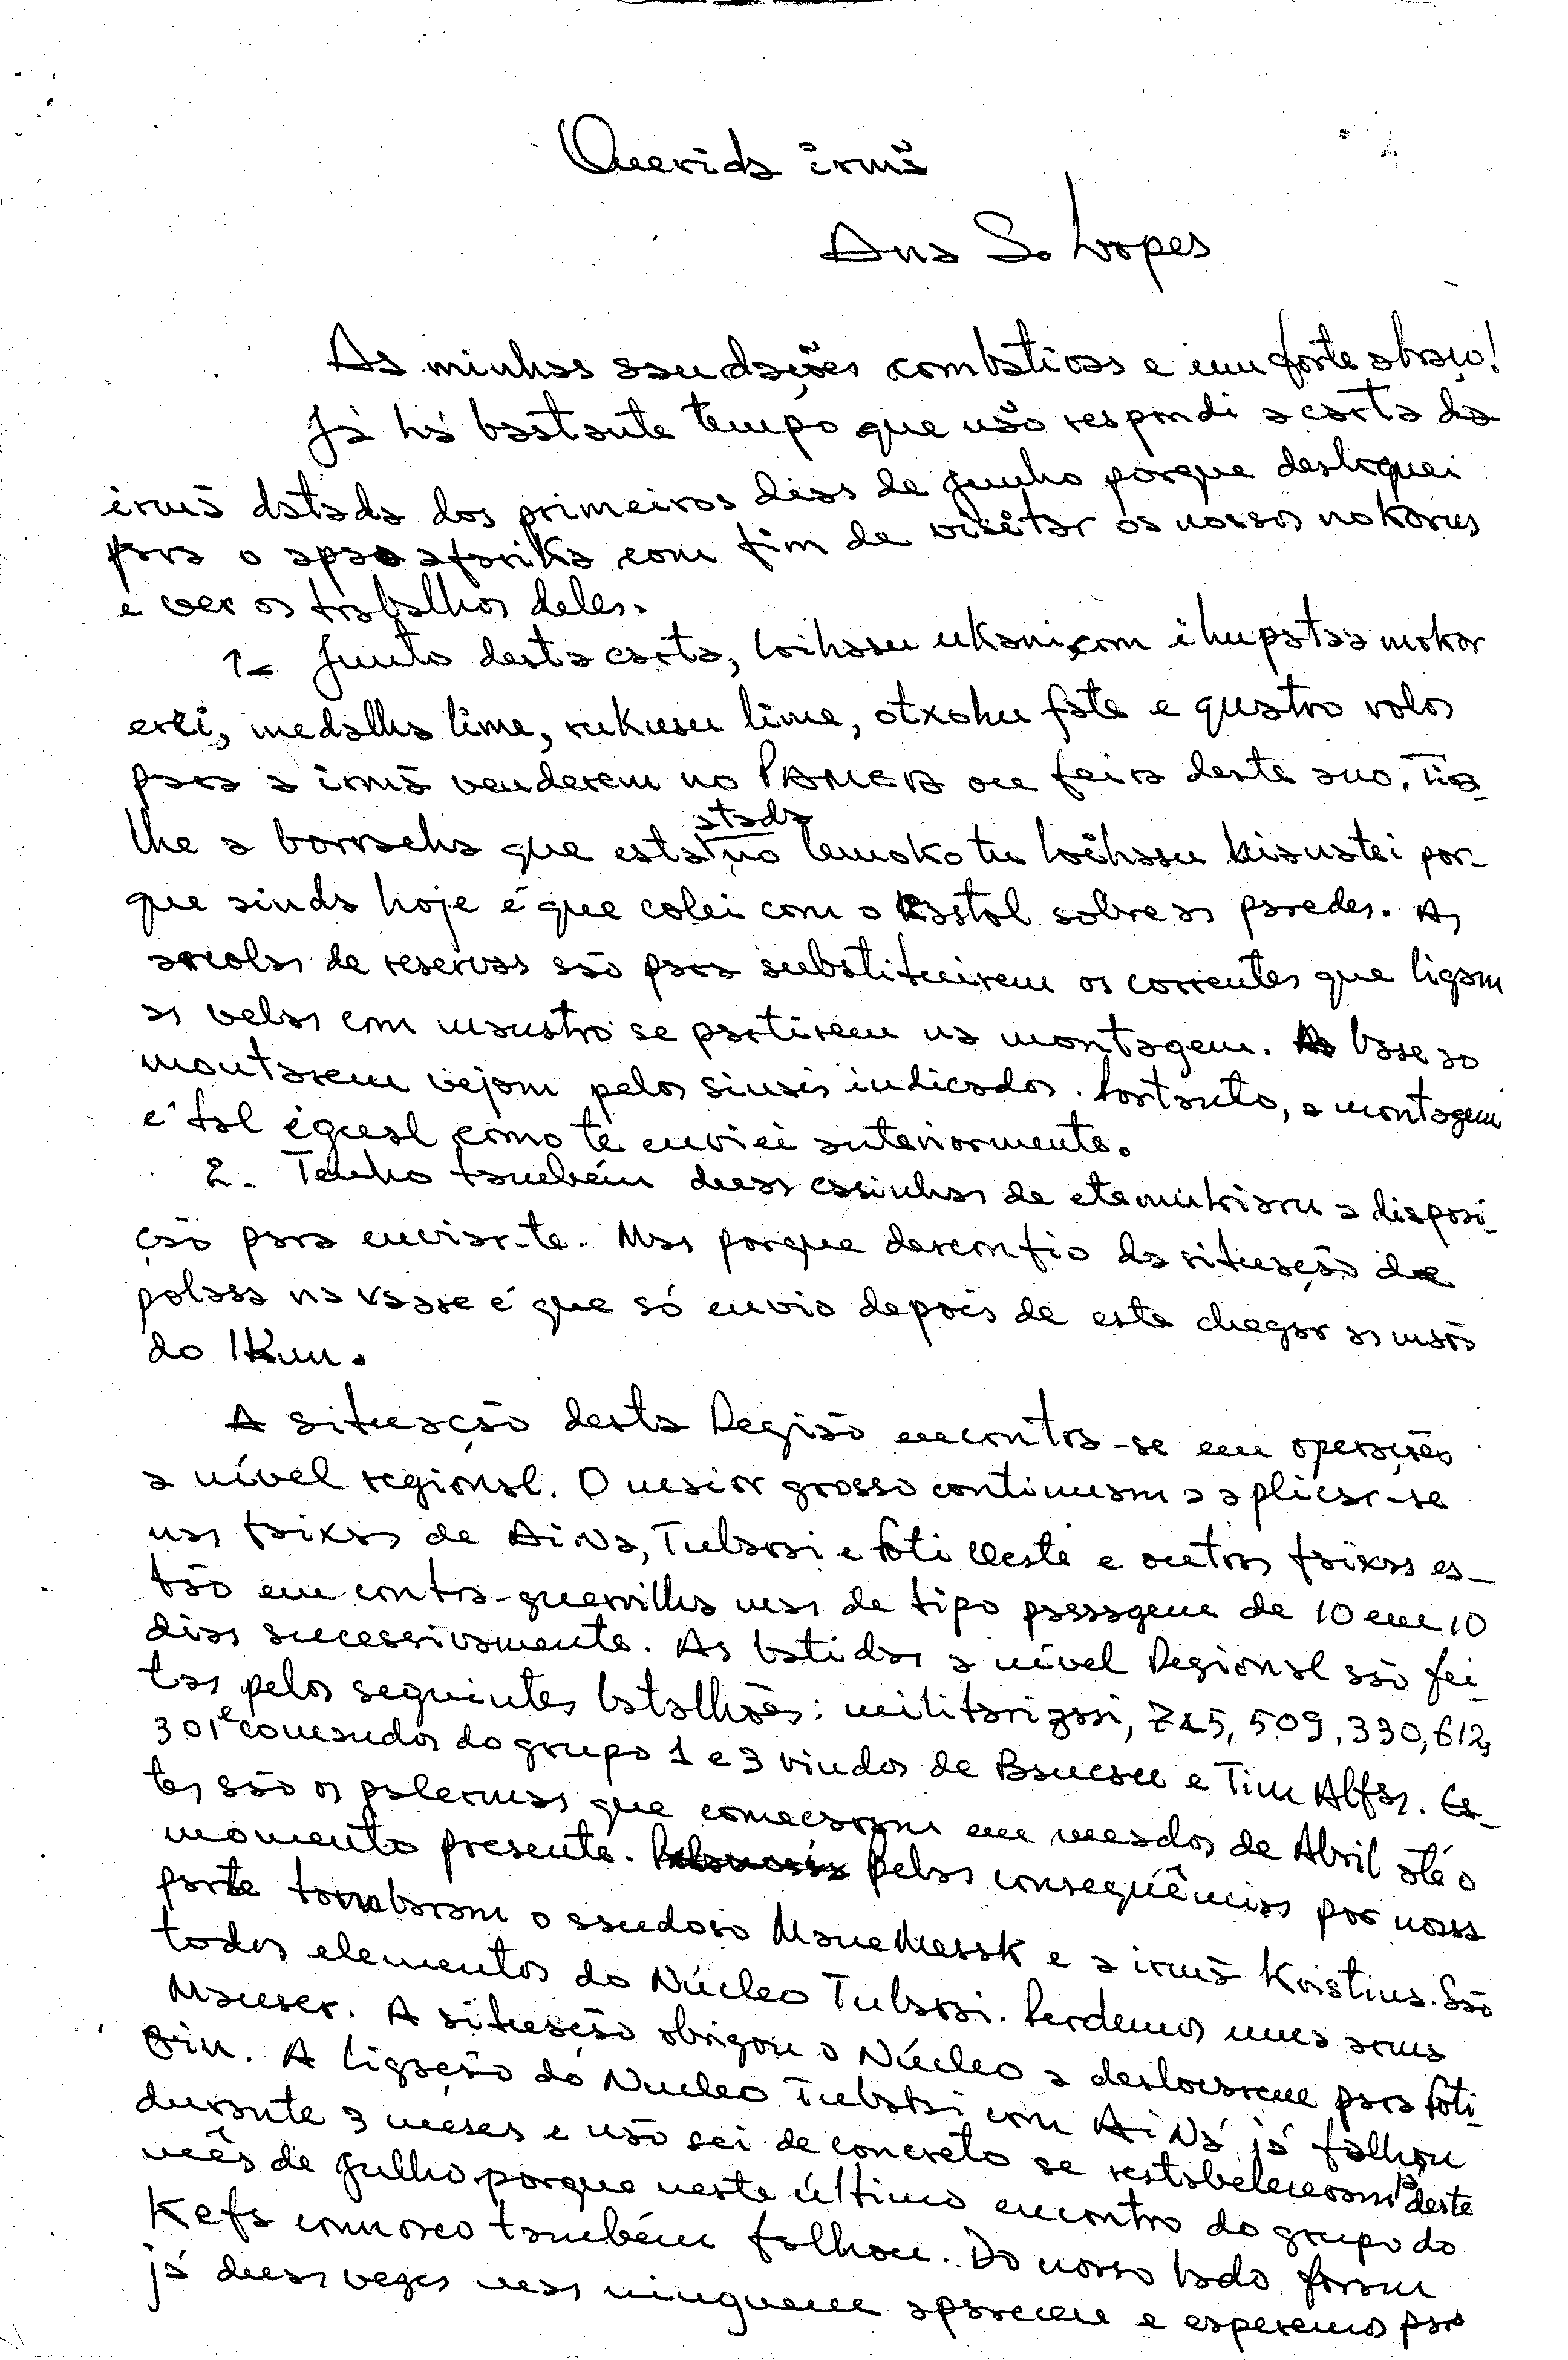 Querida irmã
Ana S. Lopes
As minhas saudações combativas e um forte abraço!
Já há bastante tempo que não respondi a carta da
irmã datada dos primeiros dias de Junho porque desloquei
para o apao afarika com fim de visitar os nossos nokorus
e ver os trabalhos deles.
1- Junto desta carta, loihasu ukani com ihupataa mokor
erei, medalha lima, rukusu lima, otxohu fata e quatro rolos
para a irmã venderem no PAMERA ou feira deste ano. Tia-
lhe a borracha que esta atada no lemokotu loihasu kianatei por-
que ainda hoje é que colei com o Kastol sobre as paredes. As
arcolas de reservas são para substituirem os correntes que ligam
as velas com maustro se partirem na montagem. A base ao
montarem vejam pelos sinais indicados. Portanto, a montagem
é tal é qual como te enviei anteriormente.
2- Tenho também duas casinhas de etamukiaru a disposi-
ção para enviar-te. Mas porque desconfio da situação de
polasa na vaase é que só envio depois de esta chegar as mãos
do IKun.
A situação desta Região encontra-se em operações
a nível regional. O maior grosso continuam a aplicar-se
nas faixas de AiNa, Tubarai e Foti Oeste e outras faixas es-
tão em contra-guerrilha mas de tipo passagem de 10 em 10
dias sucessivamente. As batidas a nível Regional são fei-
tas pelos seguintes batalhões: militarizasi, 745, 509, 330, 612,
301 e comandos do grupo 1 e 3 vindos de Baucau e Tim Alfas. Es-
tes são os palermas que começaram em meados de Abril até o
momento presente. Pelas consequências por nossa
parte tombaram o saudoso ManeMessak e a irmã Kristina. São
todos elementos do Núcleo Tubarai. Perdemos uma arma
Mauser. A situação obrigou o Núcleo a deslocarem para Foti-
Oin. A ligação do Nucleo Tubarai com AiNá já falhou
durante 3 meses e não sei de concreto se restabeleceram já deste
mês de Julho porque neste último encontro do grupo do
Kefa connosco também falhou. Do nosso lado foram
já duas vezes mas ninguem apareceu e esperemos para